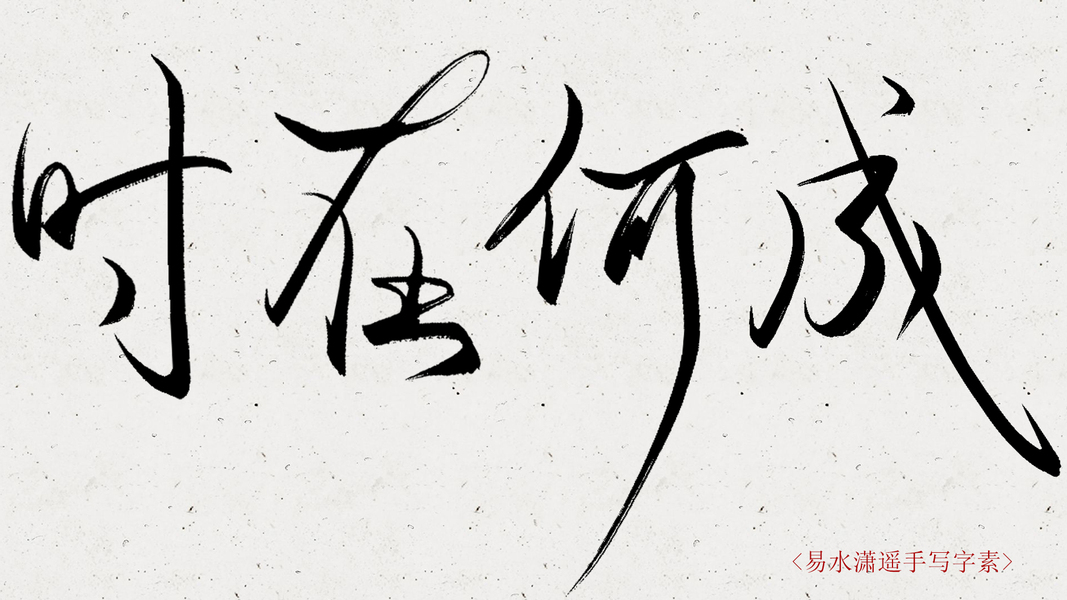 时在何成
<易水潇遥手写字素>